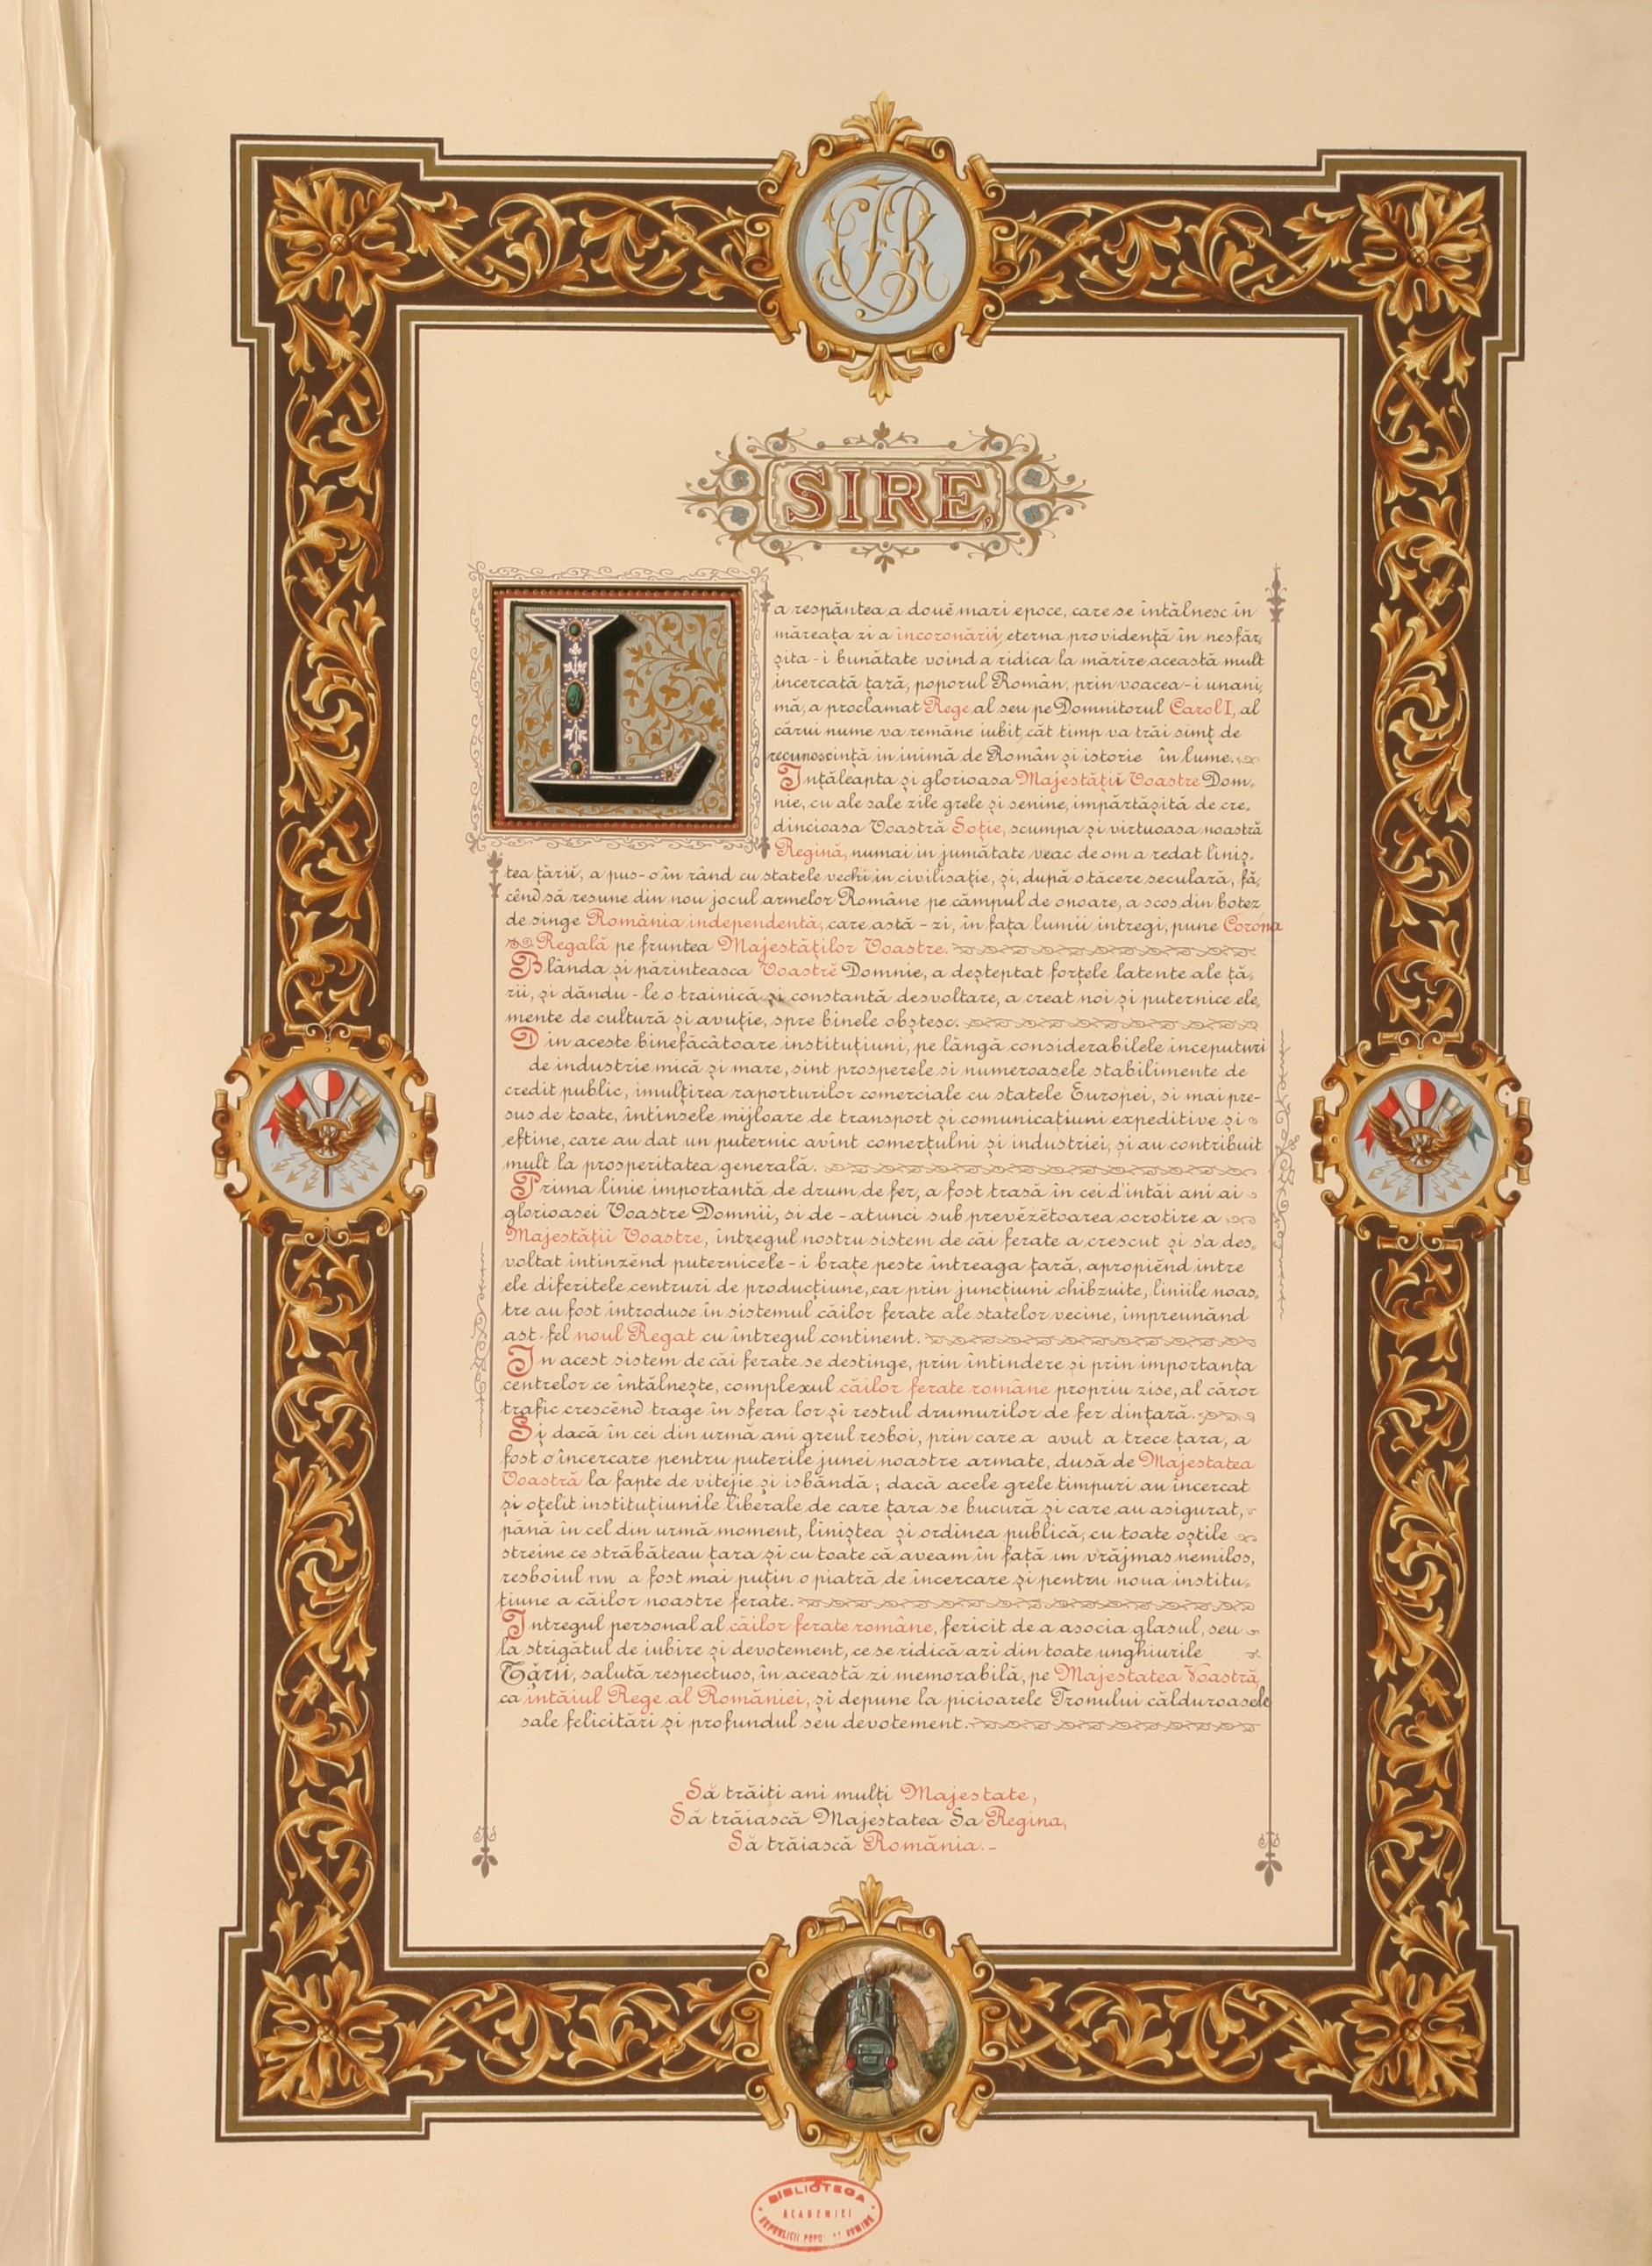 CFR
SIRE,
La respântea a douĕ mari epoce, care se întâlnesc în
măreața zi a încoronării, eterna providență în nesfâr,
șita-i bunătate voind a ridica la mărire această mult
incercată țară, poporul Român, prin voacea-i unani,
mă, a proclamat Rege al seu pe Domnitorul Carol I, al
cărui nume va remâne iubit cât timp va trăi simț de
recunoscință in inimă de Român și istorie în lume.
Ințăleapta și glorioasa Majestății Voastre Dom,
nie, cu ale sale zile grele și senine, impărtășită de cre,
dincioasa Voastră Soție, scumpa și virtuoasa noastră
Regină, numai in jumătate veac de om a redat liniș,
tea țării, a pus-o în rând cu statele vechi in civilisație, și, după o tăcere seculară, fă,
cênd să resune din nou jocul armelor Române pe câmpul de onoare, a scos din botez
de singe România independentă, care astă-zi, în fața lumii intregi, pune Coróna
Regală pe fruntea Majestăților Voastre.
Blânda și părinteasca Voastrĕ Domnie, a deșteptat forțele latente ale ță,
rii, și dându-le o trainică și constantă desvoltare, a creat noi și puternice ele,
mente de cultură și avuție, spre binele obștesc.
Din aceste binefăcătoare instituțiuni, pe lângă considerabilele inceputuri
de industrie mică și mare, sint prosperele si numeroasele stabilimente de
credit public, imulțirea raporturilor comerciale cu statele Europei, si mai pre-
sus de toate, întinsele mijloare de transport și comunicațiuni expeditive și
eftine, care au dat un puternic avînt comerțului și industriei, și au contribuit
mult la prosperitatea generală.
Prima linie importantă de drum de fer, a fost trasă în cei d'intâi ani ai
glorioasei Voastre Domnii, si de-atunci sub prevĕzĕtoarea ocrotire a
Majestății Voastre, intregul nostru sistem de căi ferate a crescut și s'a des,
voltat intinzênd puternicele-i brațe peste întreaga țară, apropiênd intre
ele diferitele centruri de producțiune, car prin juncțiuni chibzuite, liniile noas,
tre au fost introduse în sistemul căilor ferate ale statelor vecine, impreunând
ast-fel noul Regat cu întregul continent.
In acest sistem de căi ferate se destinge, prin întindere și prin importanța
centrelor ce întâlnește, complexul căilor ferate române propriu zise, al căror
trafic crescênd trage în sfera lor și restul drumurilor de fer din țară.
Și dacă în cei din urmă ani greul resboi, prin care a avut a trece țara, a
fost o încercare pentru puterile junei noastre armate, dusă de Majestatea
Voastră la fapte de vitejie și isbândă; dacă acele grele timpuri au încercat
și oțelit instituțiunile liberale de care țara se bucură și care au asigurat,
până în cel din urmă moment, liniștea și ordinea publică, cu toate oștile
streine ce străbăteau țara și cu toate că aveam în față un vrăjmas nemilos,
resboiul nu a fost mai puțin o piatră de încercare și pentru noua institu,
țiune a căilor noastre ferate.
Intregul personal al căilor ferate române, fericit de a asocia glasul, seu
la strigătul de iubire și devotement, ce se ridică azi din toate unghiurile
Țării, salută respectuos, în această zi memorabilă, pe Majestatea Voastră,
ca intâiul Rege al României, și depune la picioarele Tronului călduroasele
sale felicitări și profundul seu devotement.
Să trăiti ani mulți Majestate,
Să trăiască Majestatea Sa Regina,
Să trăiască România.-
BIBLIOTECA
ACADEMIEI